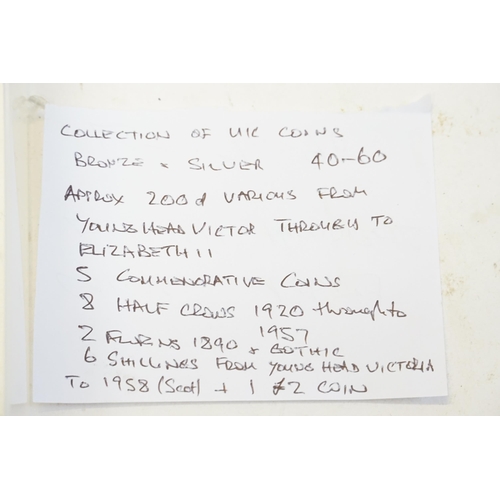 COLLECTION OF UK COINS
BRONZE & SILVER 40-60
APPROX 200 d VARIOUS FROM
YOUNG HEAD VICTOR THROUGH TO
ELIZABETH II
5 COMMEMORATIVE COINS
8 HALF CROWNS 1920 through to
1957
2 FLORINS 1890 & GOTHIC
6 SHILLINGS FROM YOUNG HEAD VICTORIA
TO 1958 (Scot) + 1 £2 COIN